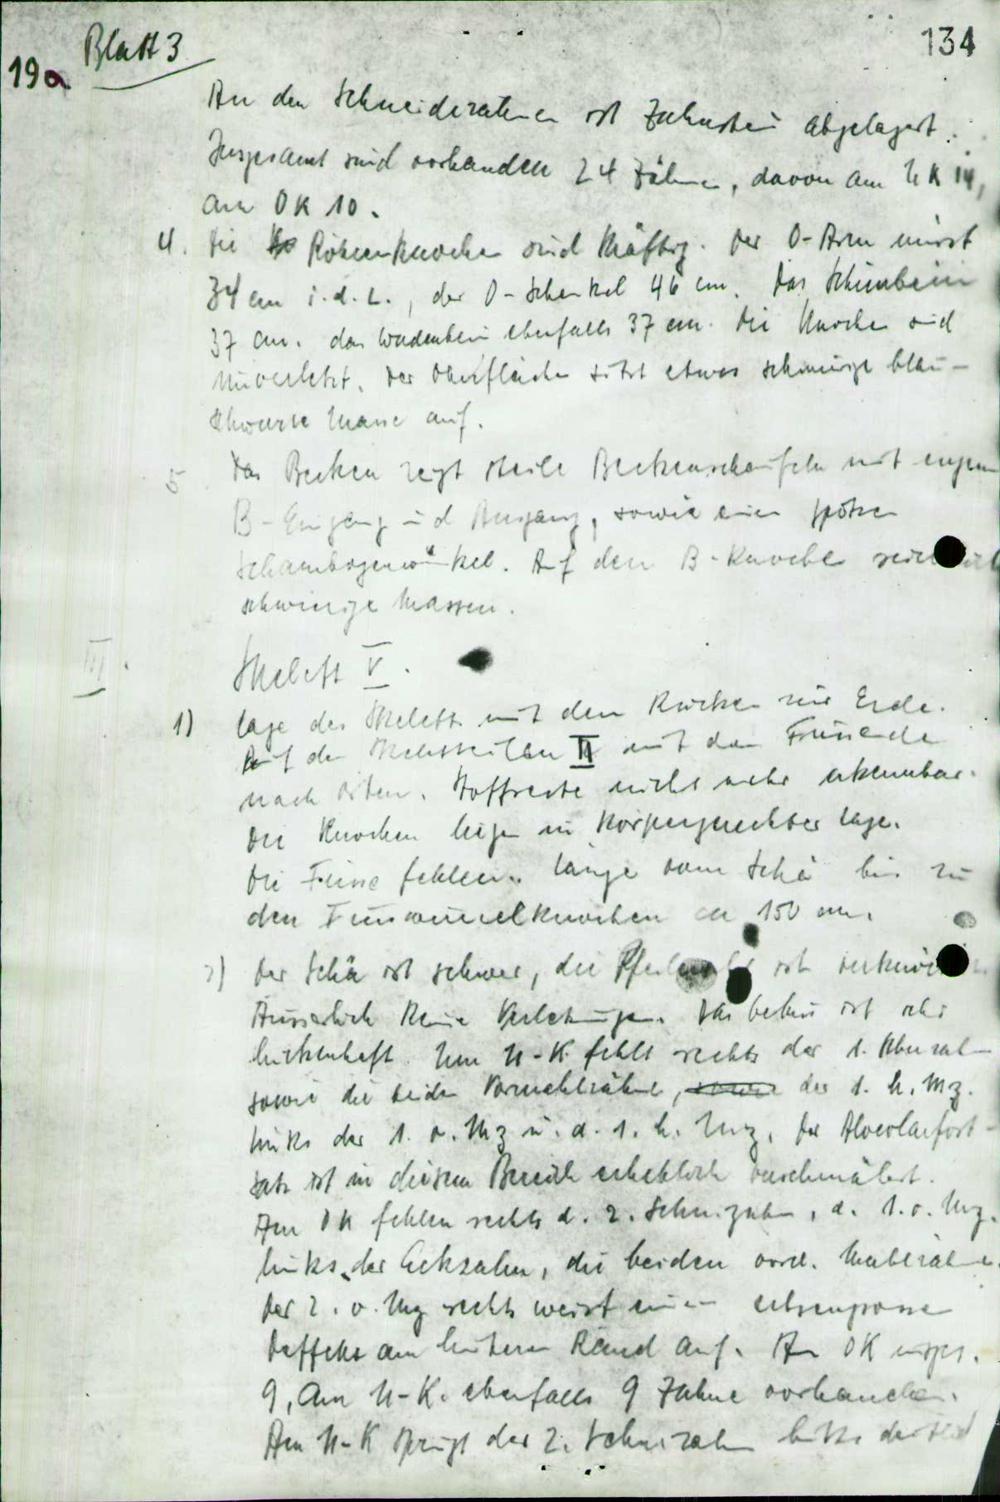 Blatt 3
134
19a
An den Schneidezähnen ist Zahnstein abgelagert.
Insgesamt sind vorhanden 24 Zähne, davon am UK 14,
am OK 10.
4. Die Röhrenknochen sind kräftig. Der O-Arm misst
34 cm i.d.L., der O-Schenkel 46 cm. Das Schienbein
37 cm. das Wadenbein ebenfalls 37 cm. Die Knochen sind
unverletzt. Der Oberfläche sitzt etwas schmierige blau-
schwarze Masse auf.
5. Das Becken zeigt steile Beckenschaufeln mit engem
B-Eingang und Ausgang, sowie einen spitzen
Schambogenwinkel. Auf den B-Knochen
schmierige Massen.
III.
Skelett V.
1) Lage des Skeletts mit dem Rücken zur Erde.
Auf den Skeletteilen II mit dem Fussende
nach Osten. Stoffreste nicht mehr erkennbar.
Die Knochen liegen in körpergerechter Lage.
Die Füsse fehlen. Länge vom Schä bis zu
den Fusswurzelknochen ca 150 cm.
2) Der Schä ist schwer, die Pfeilnaht ist
Äusserlich keine Verletzungen. Das Gebiss ist sehr
lückenhaft. Am U-K fehlt rechts der 1.
sowie die beiden Vormahlzähne, der 1. h. Mz.
links der 1. v. Mz u. d. 1. h. Mz. Der Alveolarfort-
satz ist in diesem Bereich erheblich verschmälert.
Am OK fehlen rechts d. 2. Schneizahn, d. 1. v. Mz.
links der Eckzahn, die beiden vord. Mahlzähne.
Der 2. v. Mz rechts weist einen erbsengrossen
Deffekt am hinteren Rand auf. Am OK insges.
9, am U-K. ebenfalls 9 Zähne vorhanden.
Am U-K springt der 2. Schneizahn links